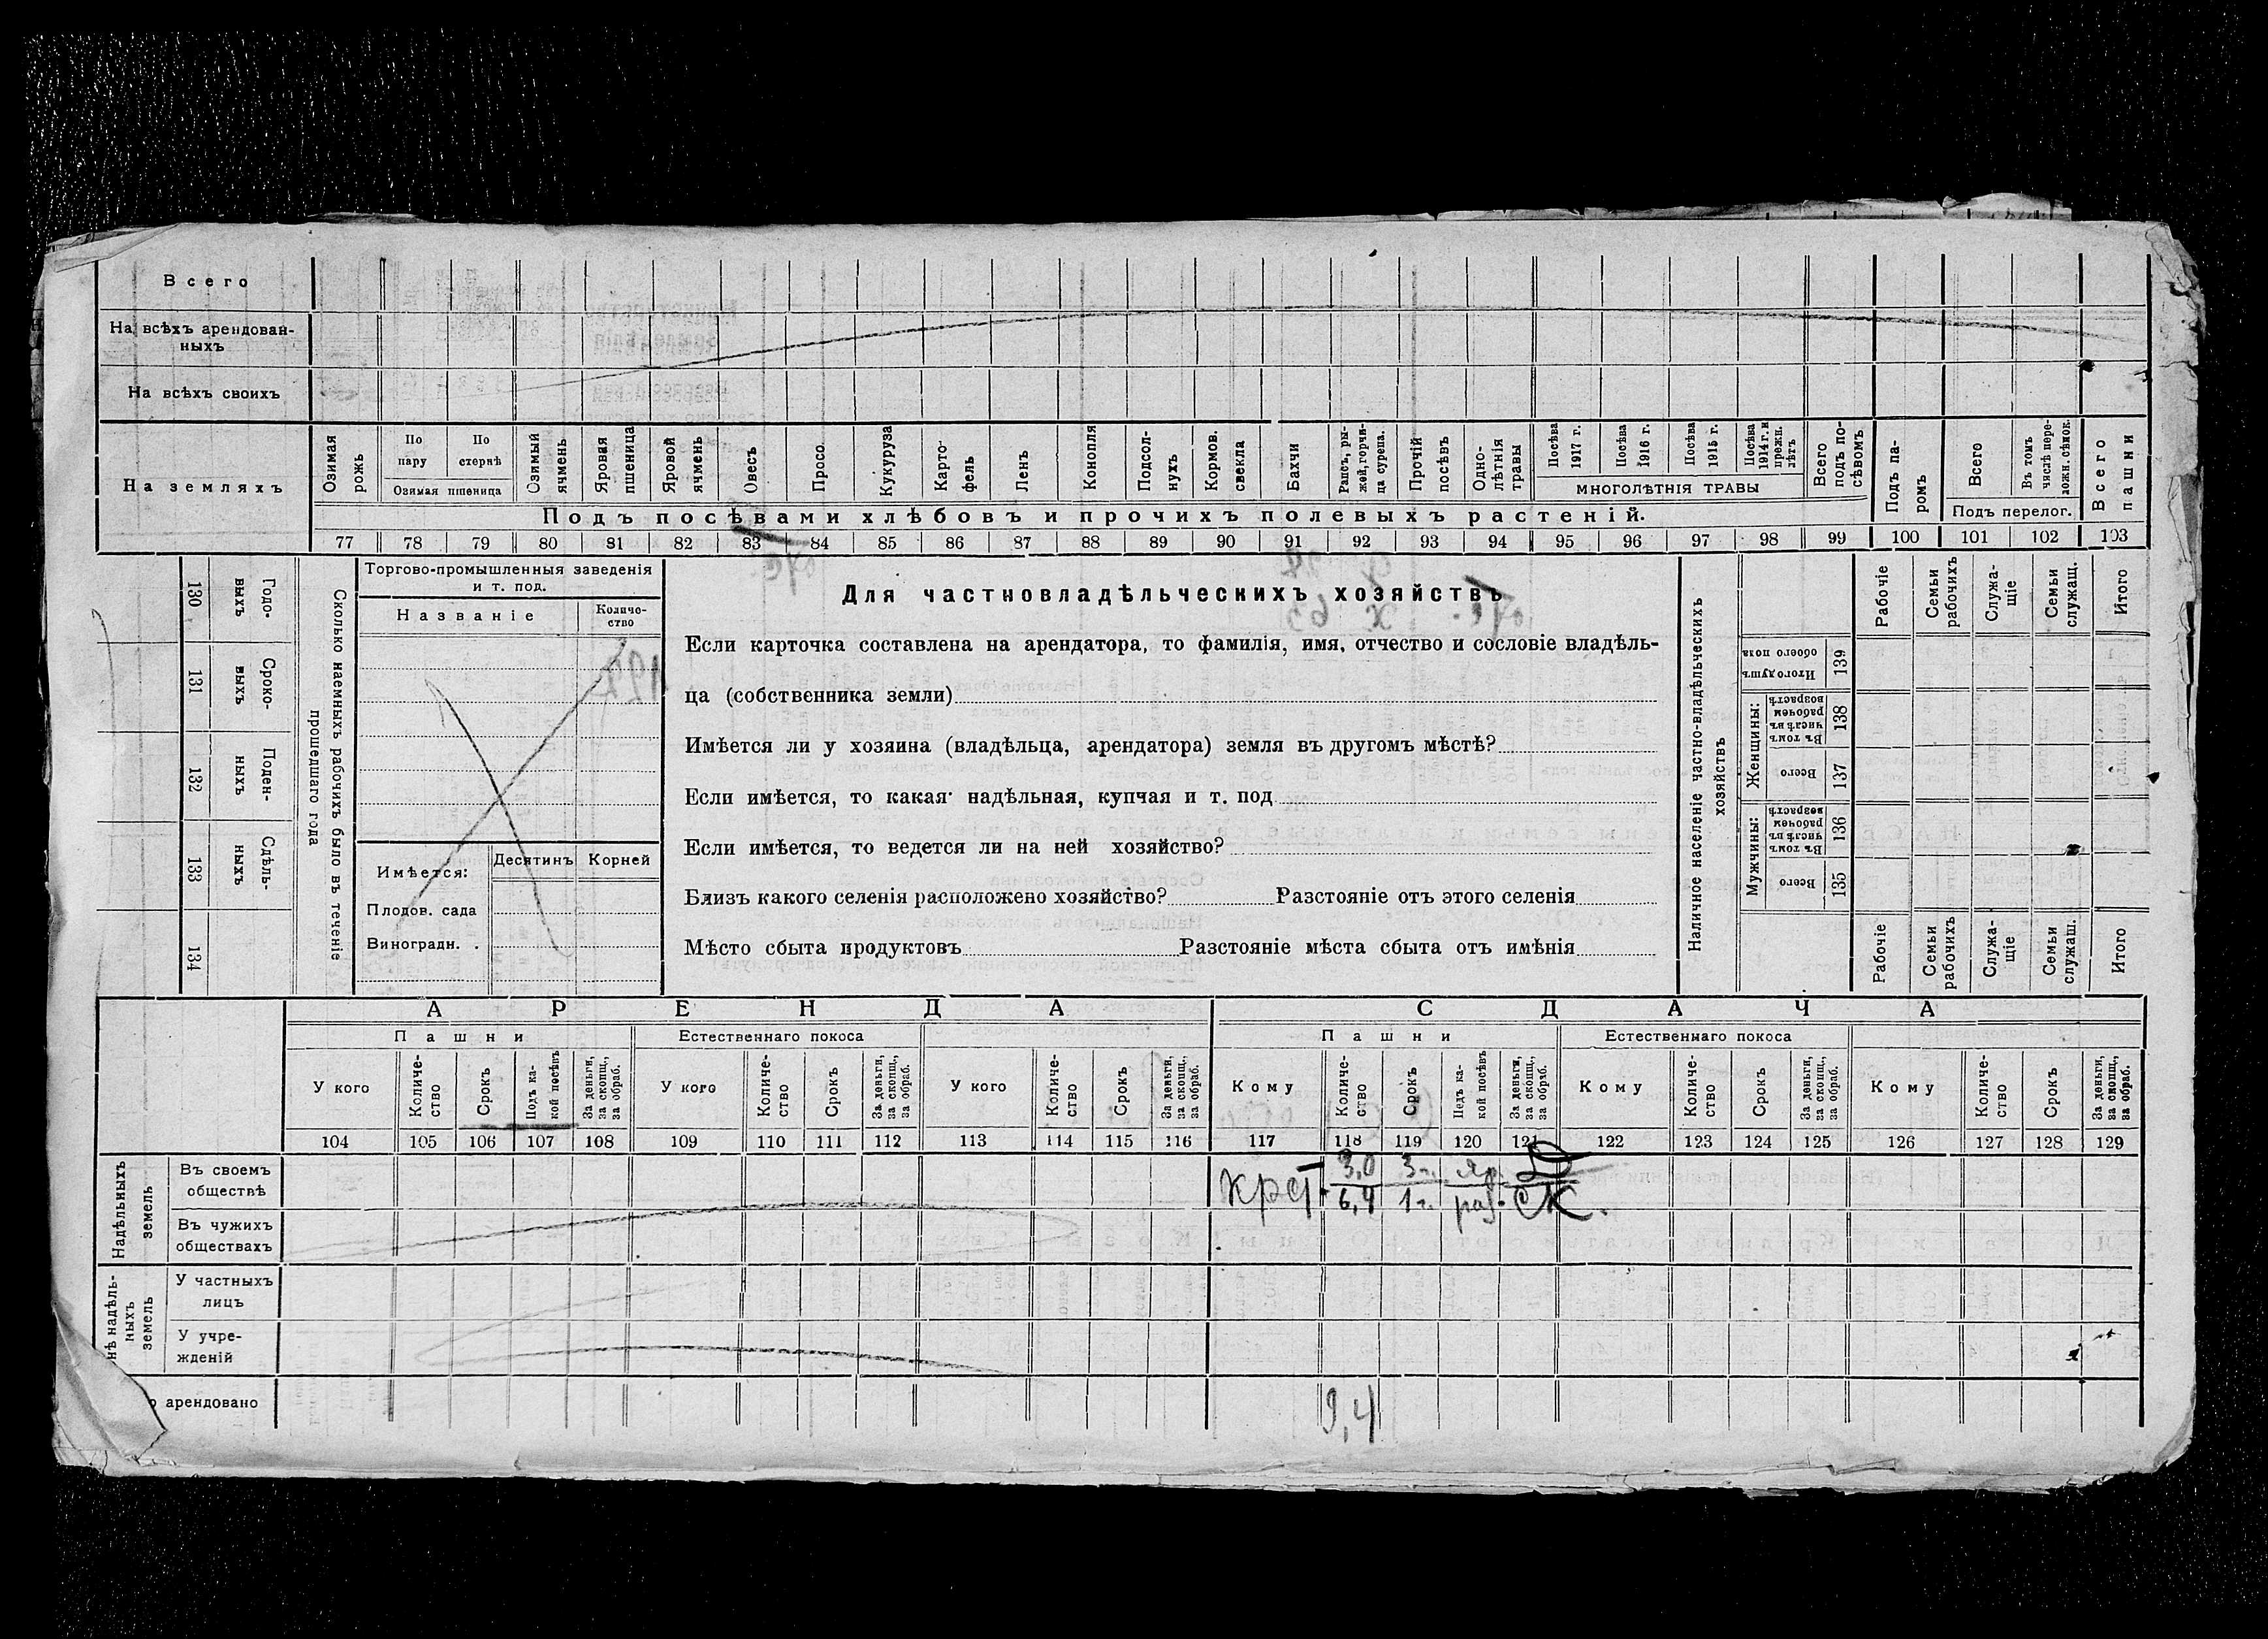 Всего
На всѣхъ арендован-
ныхъ
На всѣхъ своихъ
На земляхъ
Озимая рожь
По пару
По стернѣ
Озимая пшеница
Озимый ячмень
Яровая пшеница
Яровой ячмень
Овесъ
Просо
Кукуруза
Карто-
фель
Ленъ
Конопля
Подсол-
нухъ
Кормов. свекла
Бахчи
Рапсъ, ры-
жей, горчи-
ца сурепа.
Прочій посѣвъ
Одно-
лѣтнія травы
Посѣва 1917 г.
Посѣва 1916 г.
Посѣва 1915 г.
Посѣва 1914 г. и прежн. лѣтъ
МНОГОЛѢТНІЯ ТРАВЫ
Всего подъ по-
сѣвомъ
Подъ па-
ромъ
Всего
Въ томъ числѣ пере-
ложн. сѣнок.
Подъ перелог.
Всего пашни
Подъ посѣвами хлѣбовъ и прочихъ полевыхъ растеній.
77 78 79 80 81 82 83 84 85 86 87 88 89 90 91 92 93 94 95 96 97 98 99 100 101 102 103
130 Годо-
выхъ
131 Сроко-
выхъ
132 Поден-
ныхъ
133 Сдѣль-
ныхъ
134
Сколько наемныхъ рабочихъ было въ теченіе
прошедшаго года
Торгово-промышленныя заведенія
и т. под.
Названіе
Количе-
ство
Имѣется:
Десятинъ
Корней
Плодов. сада
Виноградн. .
Для частновладѣльческихъ хозяйствъ
Если карточка составлена на арендатора, то фамилія, имя, отчество и сословіе владѣль-
ца (собственника земли)
Имѣется ли у хозяина (владѣльца, арендатора) земля въ другомъ мѣстѣ?
Если имѣется, то какая· надѣльная, купчая и т. под
Если имѣется, то ведется ли на ней хозяйство?
Близъ какого селенія расположено хозяйство? Разстояніе отъ этого селенія
Мѣсто сбыта продуктовъ Разстояніе мѣста сбыта отъ имѣнія
Наличное населеніе частно-владѣльческихъ
хозяйствъ
Рабочіе
Семьи рабочихъ
Служа-
щіе
Семьи служащ.
Итого
Итого душъ обоего пола 139
Женщины:
Въ томъ числѣ въ рабочемъ возрастѣ 138
Всего 137
Мужчины:
Въ томъ числѣ въ рабочемъ возрастѣ 136
Всего 135
Рабочіе
Семьи рабочихъ
Служа-
щіе
Семьи служащ.
Итого
АРЕНДА
СДАЧА
Пашни
Естественнаго покоса
Пашни
Естественнаго покоса
У кого
Количе-
ство
Срокъ
Подъ ка-
кой посѣвъ
За деньги, за скопщ., за обраб.
У кого
Количе-
ство
Срокъ
За деньги, за скопщ., за обраб.
У кого
Количе-
ство
Срокъ
За деньги, за скопщ., за обраб.
Кому
Количе-
ство
Срокъ
Подъ ка-
кой посѣвъ
За деньги, за скопщ., за обраб.
Кому
Количе-
ство
Срокъ
За деньги, за скопщ., за обраб.
Кому
Количе-
ство
Срокъ
За деньги, за скопщ., за обраб.
104 105 106 107 108 109 110 111 112 113 114 115 116 117 118 119 120 121 122 123 124 125 126 127 128 129
Надѣльныхъ
земель
Въ своемъ
обществѣ
3,0 3 г. яр. Д
крст. 6,4 1 г. раз. СК.
Въ чужихъ
обществахъ
нѣ надѣль-
ныхъ
земель
У частныхъ
лицъ
У учре-
жденій
о арендовано
9,4